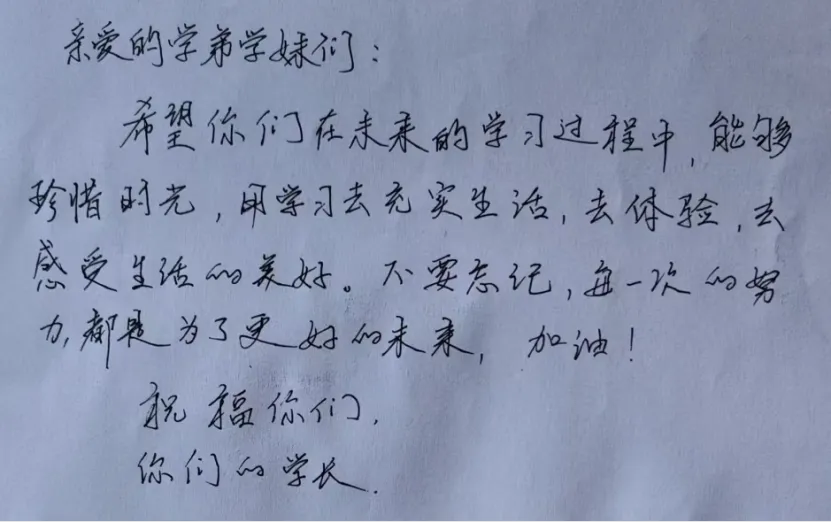 亲爱的学弟学妹们：
希望你们在未来的学习过程中，能够
珍惜时光，用学习去充实生活，去体验，去
感受生活的美好。不要忘记，每一次的努
力，都是为了更好的未来，加油！
祝福你们，
你们的学长.